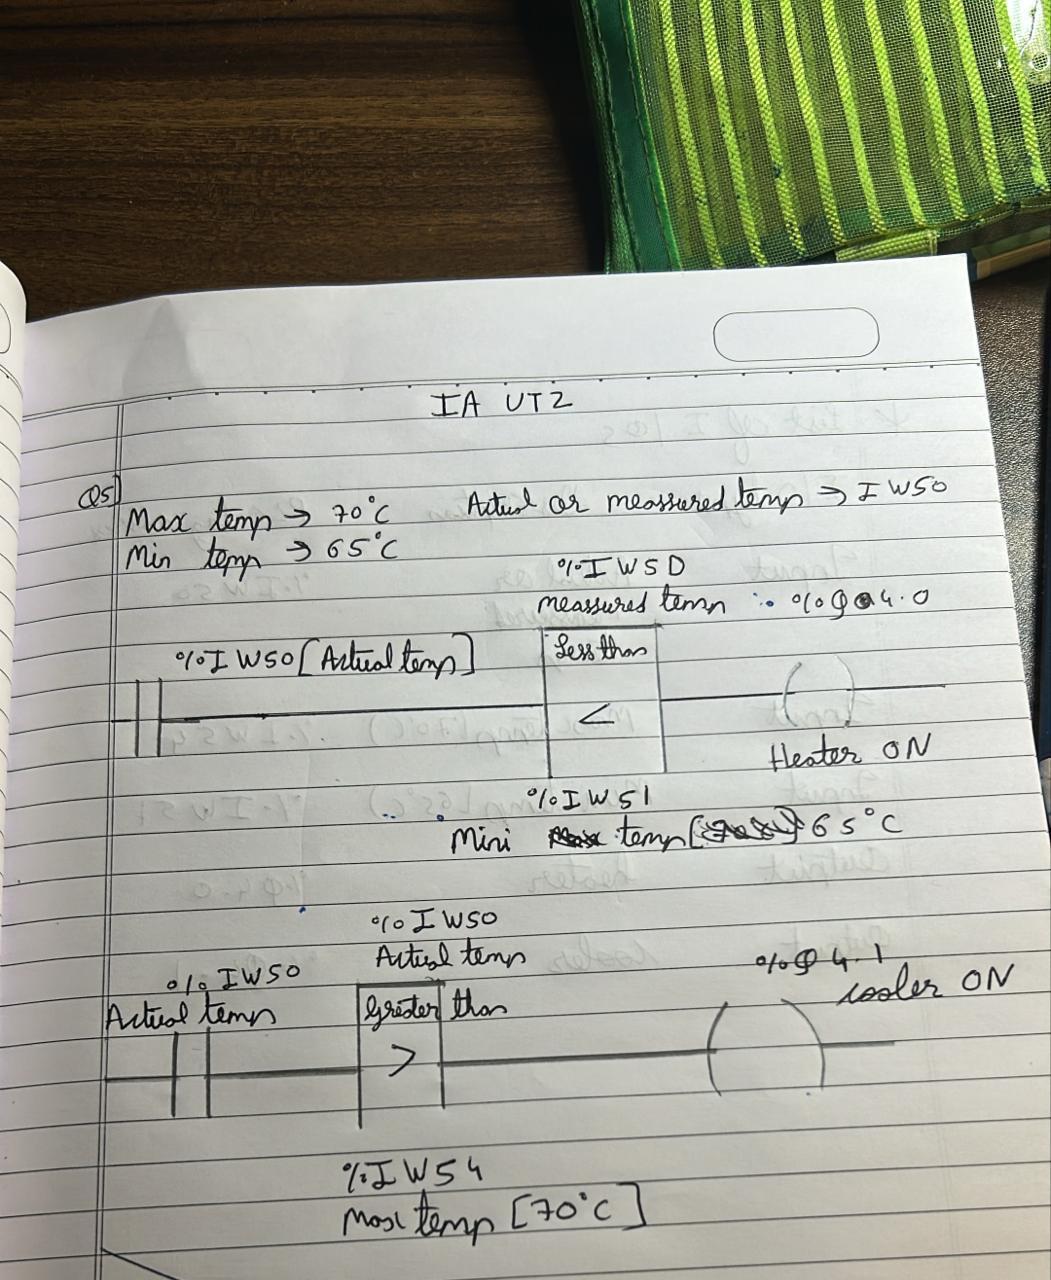 IA UT2
Q5]
Max temp → 70°C Actual or meassured temp → IW50
Min temp → 65°C
%IW50
meassured temp %Q4.0
%IW50 [Actual temp] Less than
<
Heater ON
%IW51
Mini temp 65°C
%IW50
Actual temp
%IW50 %Q4.1
Actual temp Greater than cooler ON
>
%IW54
Max temp [70°C]